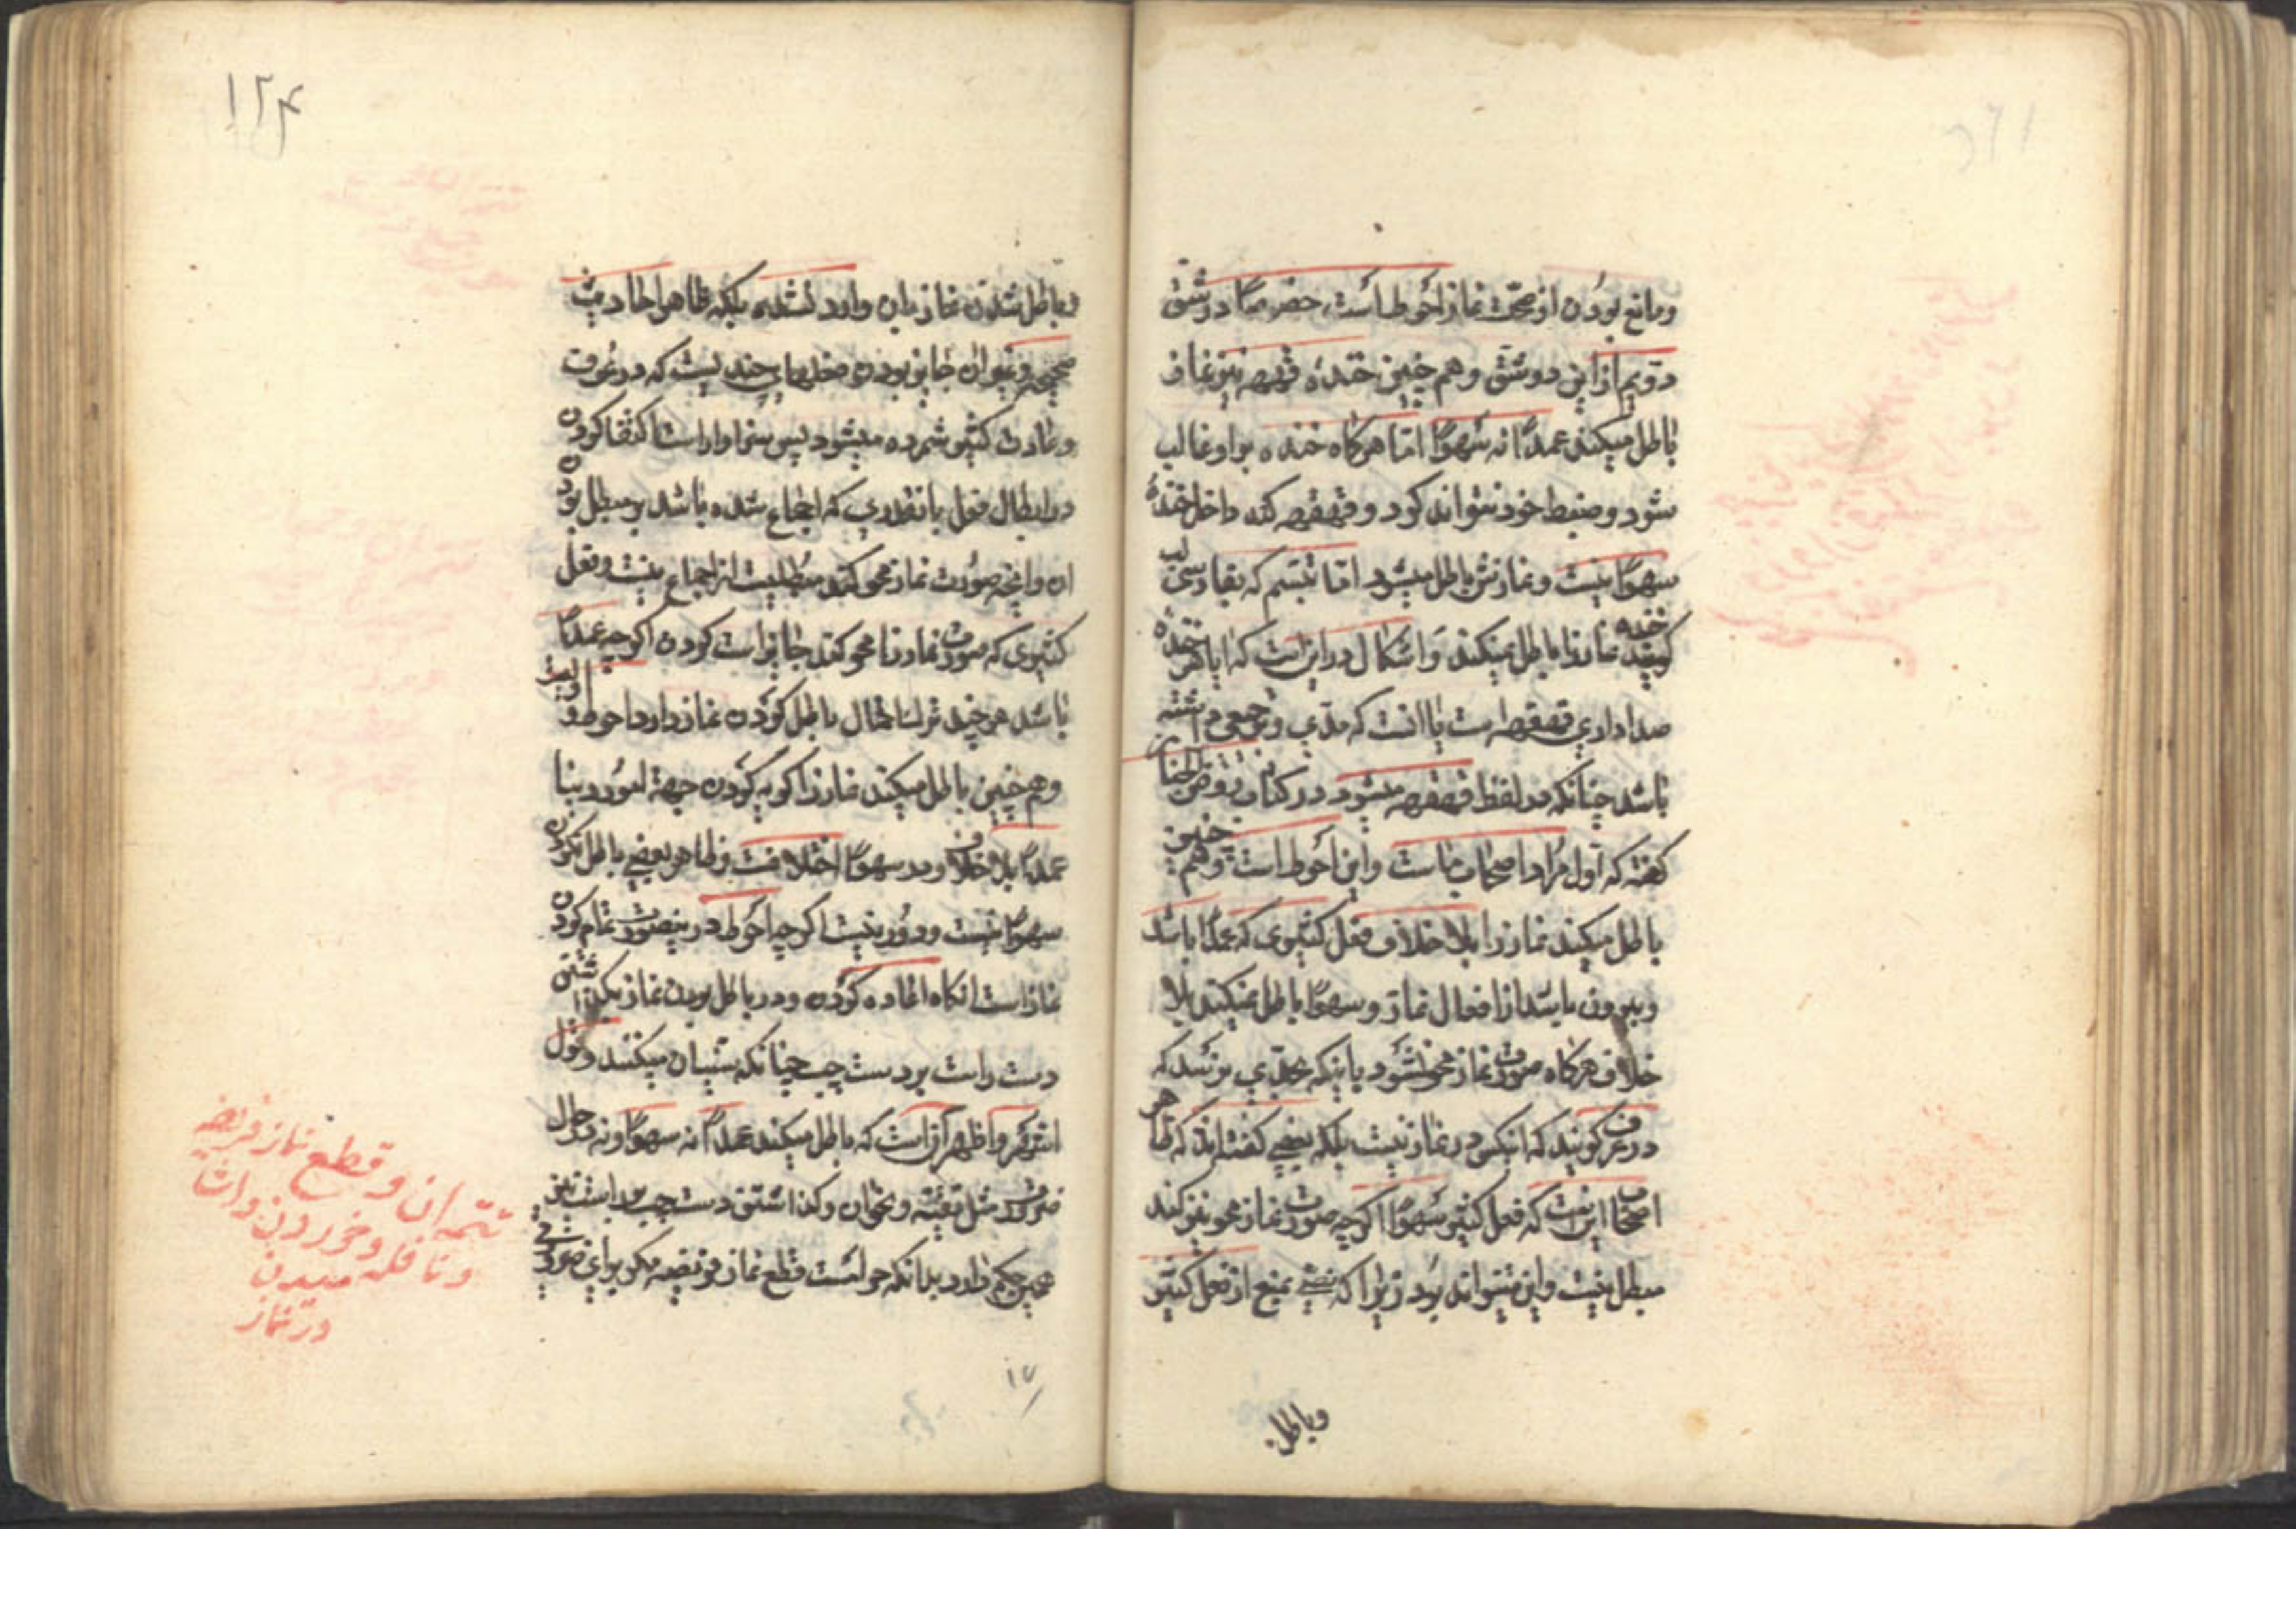 ومانع بودن از صحّت نماز احوط است خصوصًا در شقّ
دویم از این دو شقّ و هم چنین خندهٔ قهقهه نیز نماز
باطل میکند عمدًا نه سهوًا امّا هرکاه خنده بر او غالب
شود و ضبط خود نتواند کرد و قهقهه کند داخل خندهٔ
سهوًا نیست و نمازش باطل میشود امّا تبسّم که بفارسی لب
خنده کویند نماز را باطل نمیکند و اشکال در این است که ایا هر خندهٔ
صداداری قهقهه است یا انست که مدّی و ترجیعی در
باشد چنانکه در لفظ قهقهه میشود در کتاب روض الجنان
کفته که اول مراد اصحاب ما است و این احوط است و هم چنین
باطل میکند نماز را بلا خلاف فعل کثیری که عمدًا باشد
و بیرون باشد از افعال نماز و سهوًا باطل نمیکند بلا
خلاف هرکاه صورت نماز محو نشود یا اینکه بحدّی نرسد که
در عرف کویند که انکس در نماز نیست بلکه بعضی کفته اند که ظاهر
اصحاب این است که فعل کثیر سهوًا اکر چه صورت نماز محو نیز کند
مبطل نیست و این میتواند بود زیرا که نصّی بمنع از فعل کثیر
وباطل
۱۲۴
و باطل شدن نماز بان وارد نشده بلکه ظاهر احادیث
صحیحه و غیر ان جایز بودن فعلهای چندیست که در عرف
و عادت کثیر شمرده میشود پس سزاوار است اکتفا کردن
در ابطال فعل بانقدری که اجماع شده باشد بر مبطل بودن
ان و انچه صورت نماز محو نکند مبطلیت از اجماع نیست و فعل
کثیری که صورت نماز را محو نکند جایز است کردن اکر چه عمدًا
باشد هر چند ترک احتمال باطل کردن نماز دارد احوط و اولیست
و هم چنین باطل میکند نماز را کریه کردن جهة امور دنیا
عمدًا بلا خلاف و در سهوًا اختلافست و ظاهر بعضی باطل نکردن
سهوًا نیست و دور نیست اکر چه احوط در نیصورت تمام کردن
نماز است انکاه اعاده کردن و در باطل بودن نماز بکذاشتن
دست راست بر دست چپ چنانکه سنیان میکنند دو قول
اشهر و اظهر آن است که باطل میکند عمدًا نه سهوًا و نه در حال
ضرورت مثل تقیّه و نحو ان و کذاشتن دست چپ بر راست نیز
همین حکم دارد بدانکه حرامست قطع نماز فریضه مکر برای ضرورتی
تتمه ان و قطع نماز فریضه
و نافله و خوردن و اشا
میدن
در نماز
۱۷